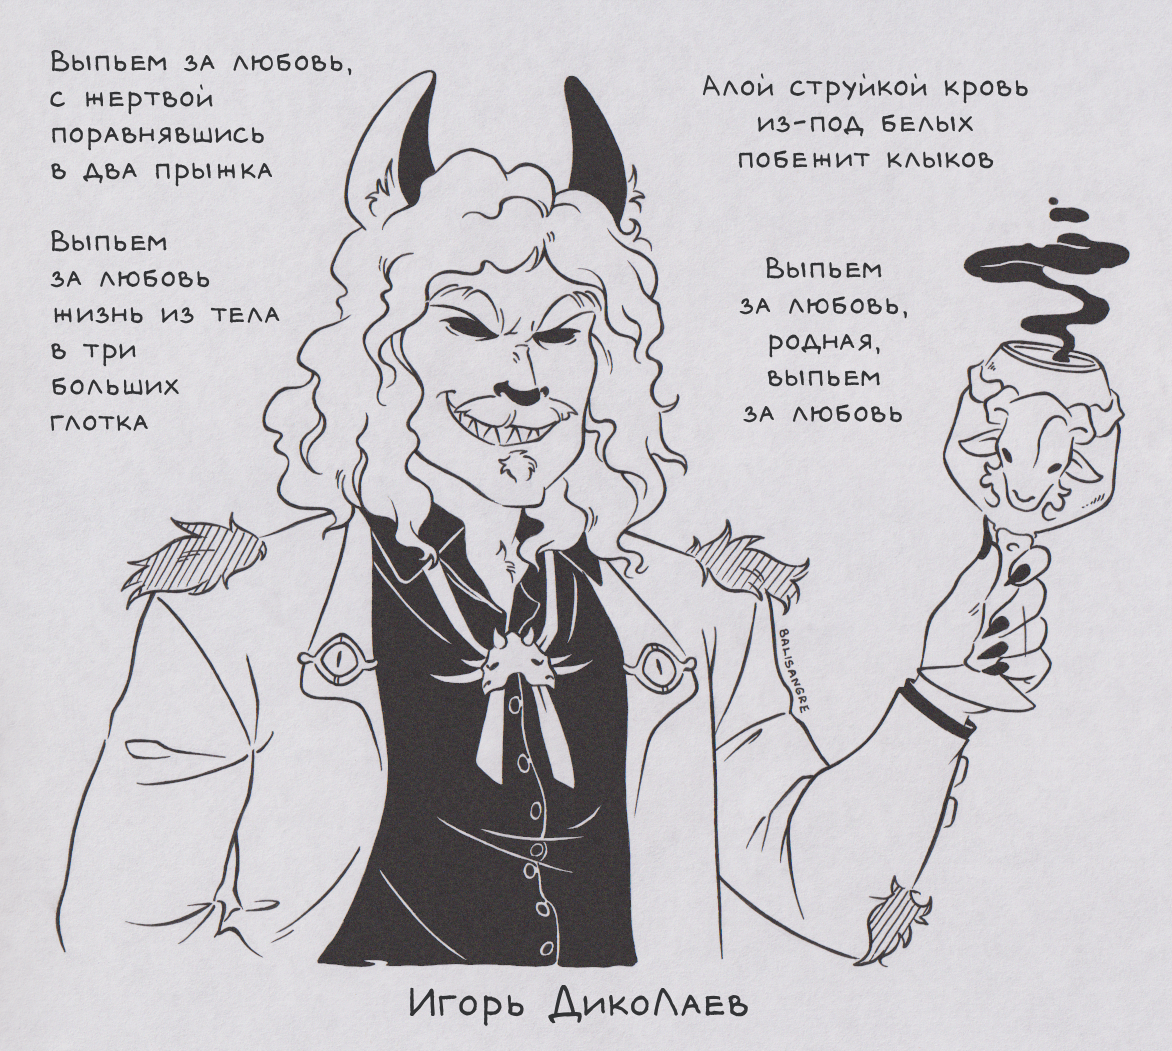 Выпьем за любовь,
с жертвой
поравнявшись
в два прыжка
Выпьем
за любовь
жизнь из тела
в три
больших
глотка
Алой струйкой кровь
из-под белых
побежит клыков
Выпьем
за любовь,
родная,
выпьем
за любовь
BALISANGRE
Игорь ДикоЛаев